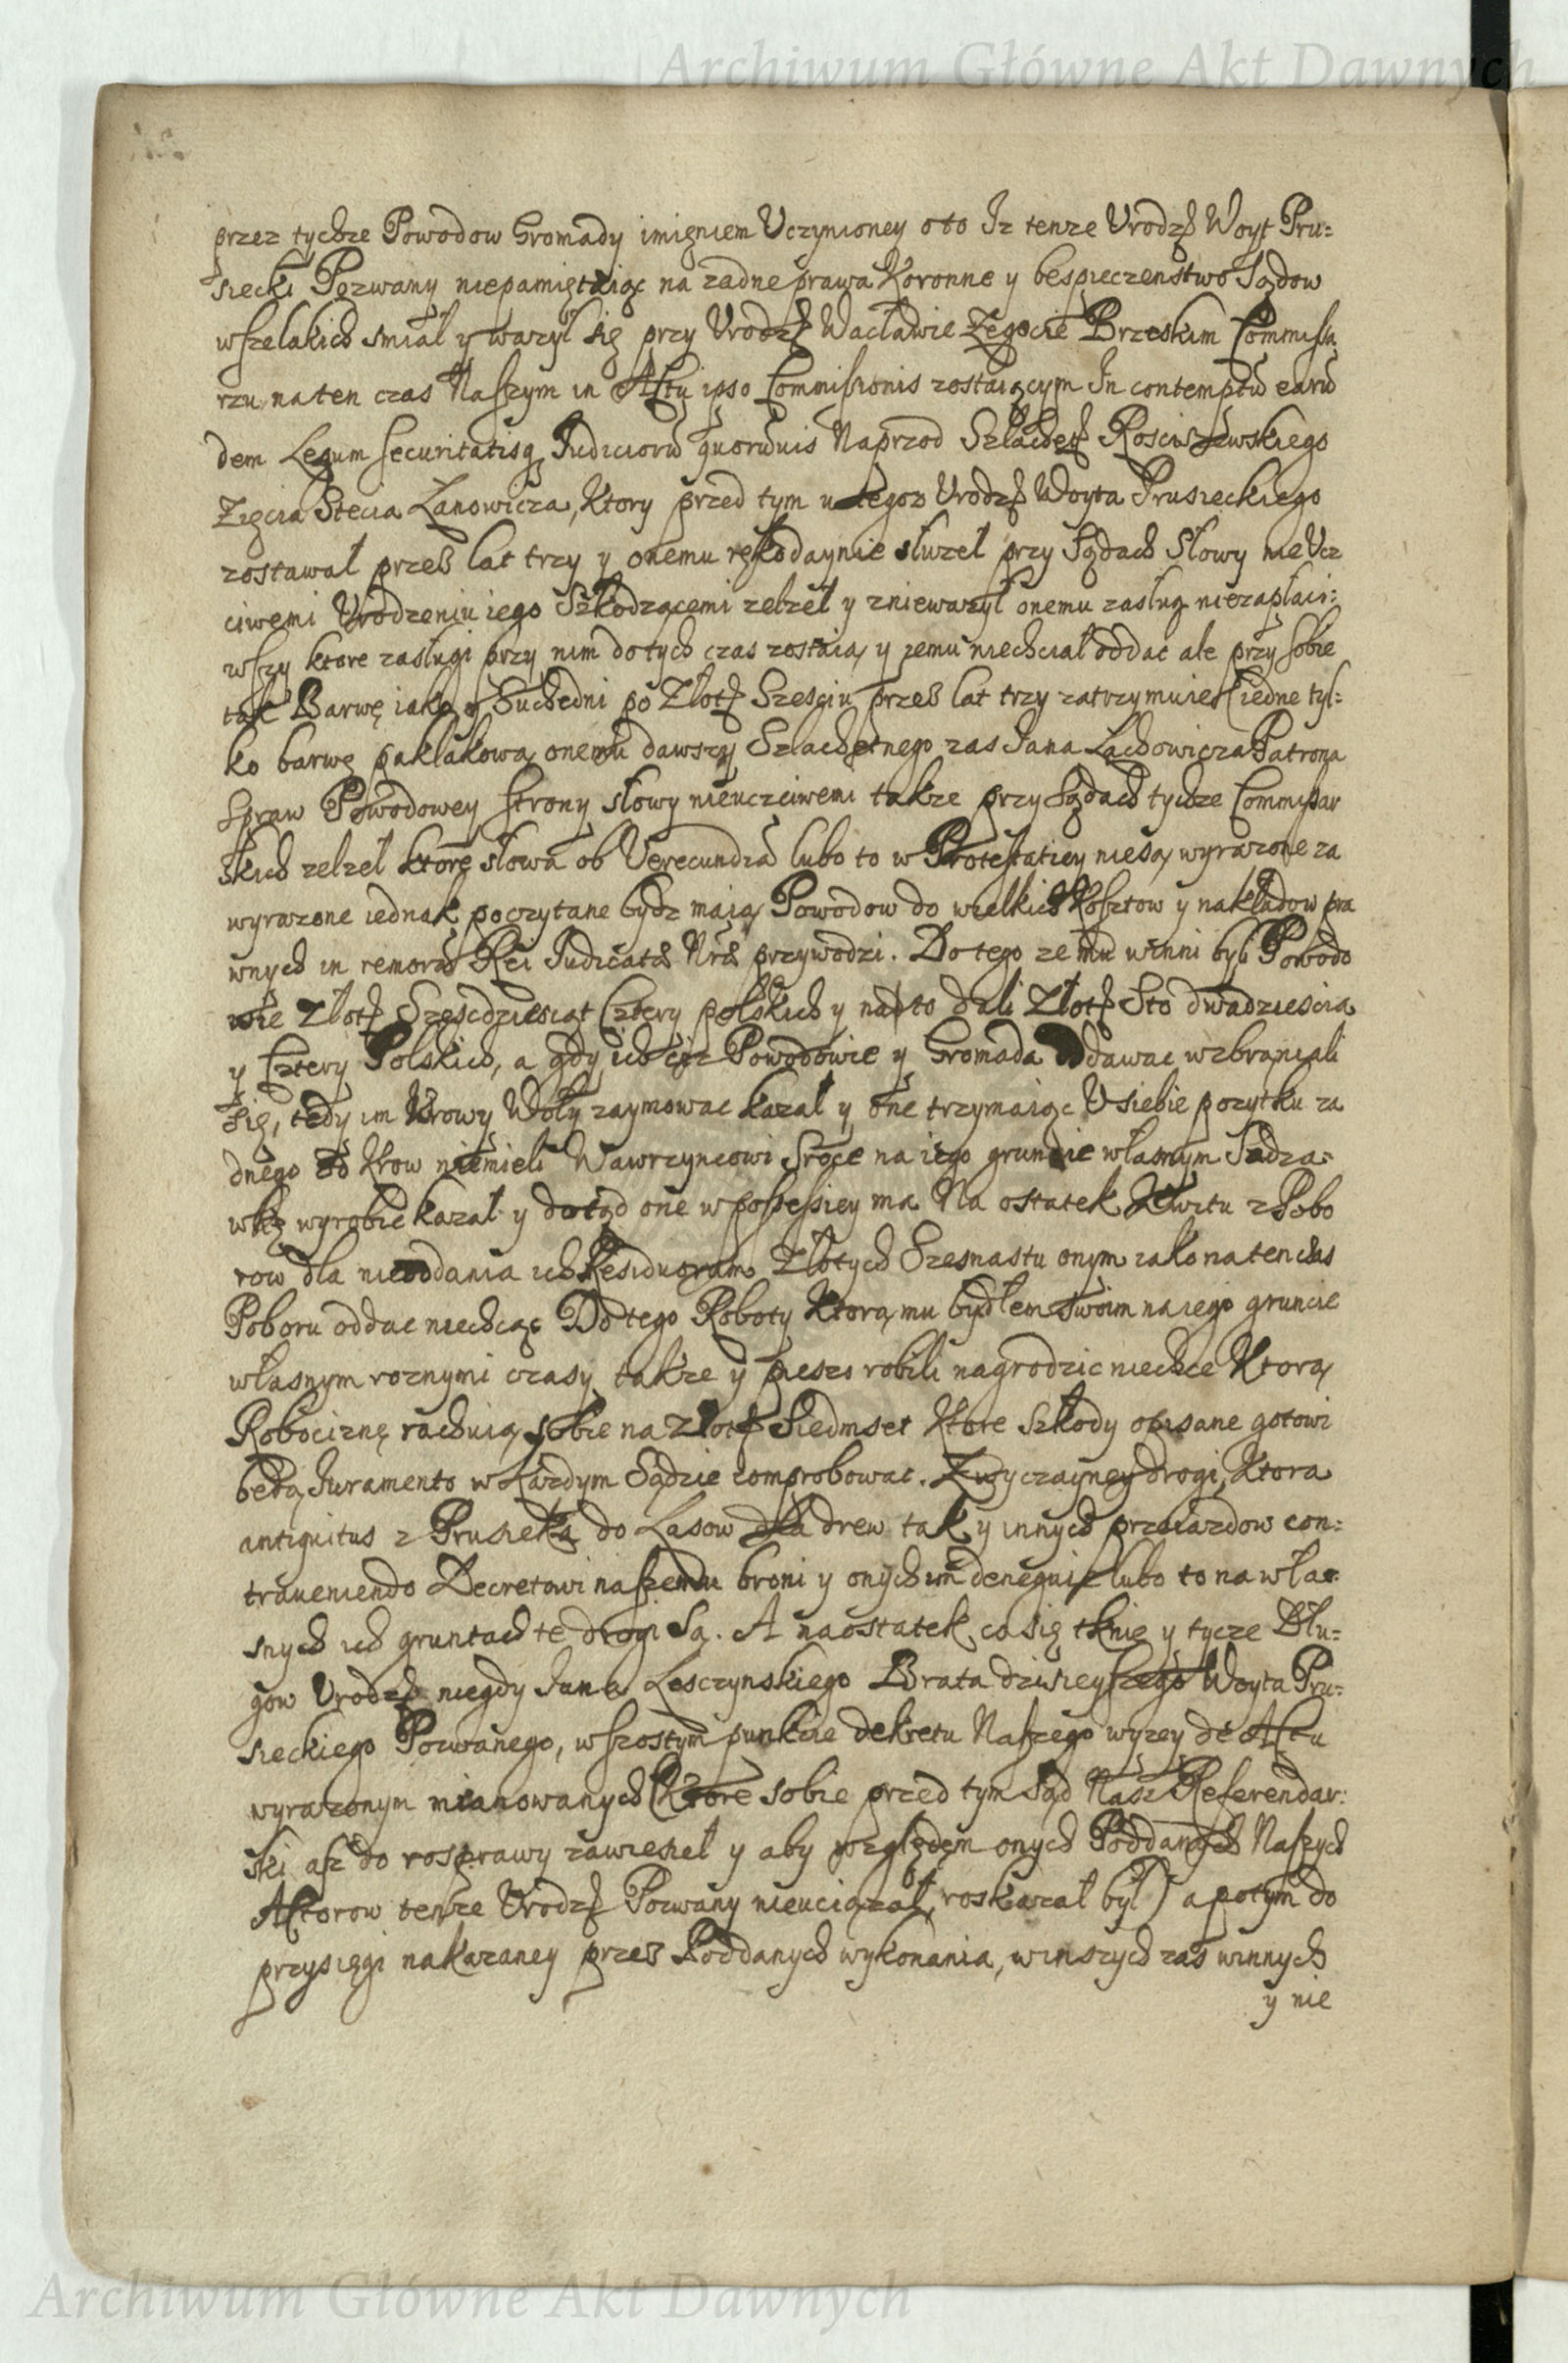 Archiwum Główne Akt Dawnych
przez tychze Powodow Gromady imięniem Uczynioney oto Iz tenze Urodz Woyt Pru=
siecki Pozwany niepamiętaiąc na zadne prawa Koronne y bespieczenstwo Sądow
wszelakich smiał y wazył się przy Urodz Wacławie Zegocie Brzeskim Commissa
rzu na ten czas Naszym in Actu ipso Commissionis zostaiącym In contemptu earu
dem Legum securitatisq Judicioru quoruuis Naprzod Szlachet Rosciszewskiego
Zięcia Stecia Łanowicza, Ktory przed tym u tegoz Urodz Woyta Prusieckiego
zostawał przez lat trzy y onemu rękodaynie słuzeł przy Sądach Słowy nieUcz
ciwemi Urodzeniu iego Szkodzącemi zelzeł y zniewazył onemu zasług niezapłaci=
wszy ktore zasługi przy nim dotych czas zostaią y jemu niechciał oddac ale przy sobie
tak Barwę iako y Suchedni po Złot Szesciu przez lat trzy zatrzymuie (iedne tyl=
ko barwę pakłakową onemu dawszy Szlachetnego zas Jana Lachowicza Patrona
Spraw Powodowey Strony słowy nieuczciwemi takze przy Sądach tychze Commissar
skich zelzeł ktore słowa ob Verecundia lubo to w Protestatiey niesą wyrazone za
wyrazone iednak poczytane bydz maią Powodow do wielkich Kosztow y nakładow pra
wnych in remora Rei Judicata Nra przywodzi. Do tego ze mu winni byli Powodo
wie Złot Szescdziesiąt Cztery polskich y nadto dali Złot Sto dwadziescia
y Cztery Polskich, a gdy ich ciz Powodowie y Gromada oddawac wzbraniali
się, tedy im Krowy Woły zaymowac kazał y one trzymaiąc U siebie pozytku za
dnego od Krow niemieli Wawrzyncowi Sroce na iego gruncie własnym Sadza=
wkę wyrobic kazał y dotąd one w possessiey ma Na ostatek Kwitu z Pobo
row dla nieoddania ich Residuoram Złotych Szesnastu onym iako na ten czas
Poboru oddac niechcąc Do tego Roboty Ktorą mu bydłem swoim na iego gruncie
własnym roznymi czasy takze y pieszo robili nagrodzic niechce Ktorą
Robociznę rachuią sobie na Złot Siedmset Ktore Szkody opisane gotowi
będą Juramento w Kazdym Sądzie comprobowac. Zwyczayney drogi, Ktora
antiquitus z Prusieka do Lasow dla drew tak y innych przeiazdow con=
traueniendo Decretowi naszemu broni y onych im deneguie lubo to na wła=
snych ich gruntach te drogi Są. A naostatek co się tknie y tycze Dłu=
gow Urodz niegdy Jana Lesczynskiego Brata dzisieyszego Woyta Pru=
sieckiego Pozwanego, w szostym punkcie dekretu Naszego wyzey de Actu
wyrazonym mianowanych (Ktore sobie przed tym Sąd Nasz Referendar=
ski asz do rosprawy zawiesieł y aby względem onych Poddanych Naszych
Actorow tenze Urodz Pozwany nieuciązał, roskazał był) a potym do
przysięgi nakazaney przez Poddanych wykonania, w inszych zas winnych
y nie
Archiwum Główne Akt Dawnych